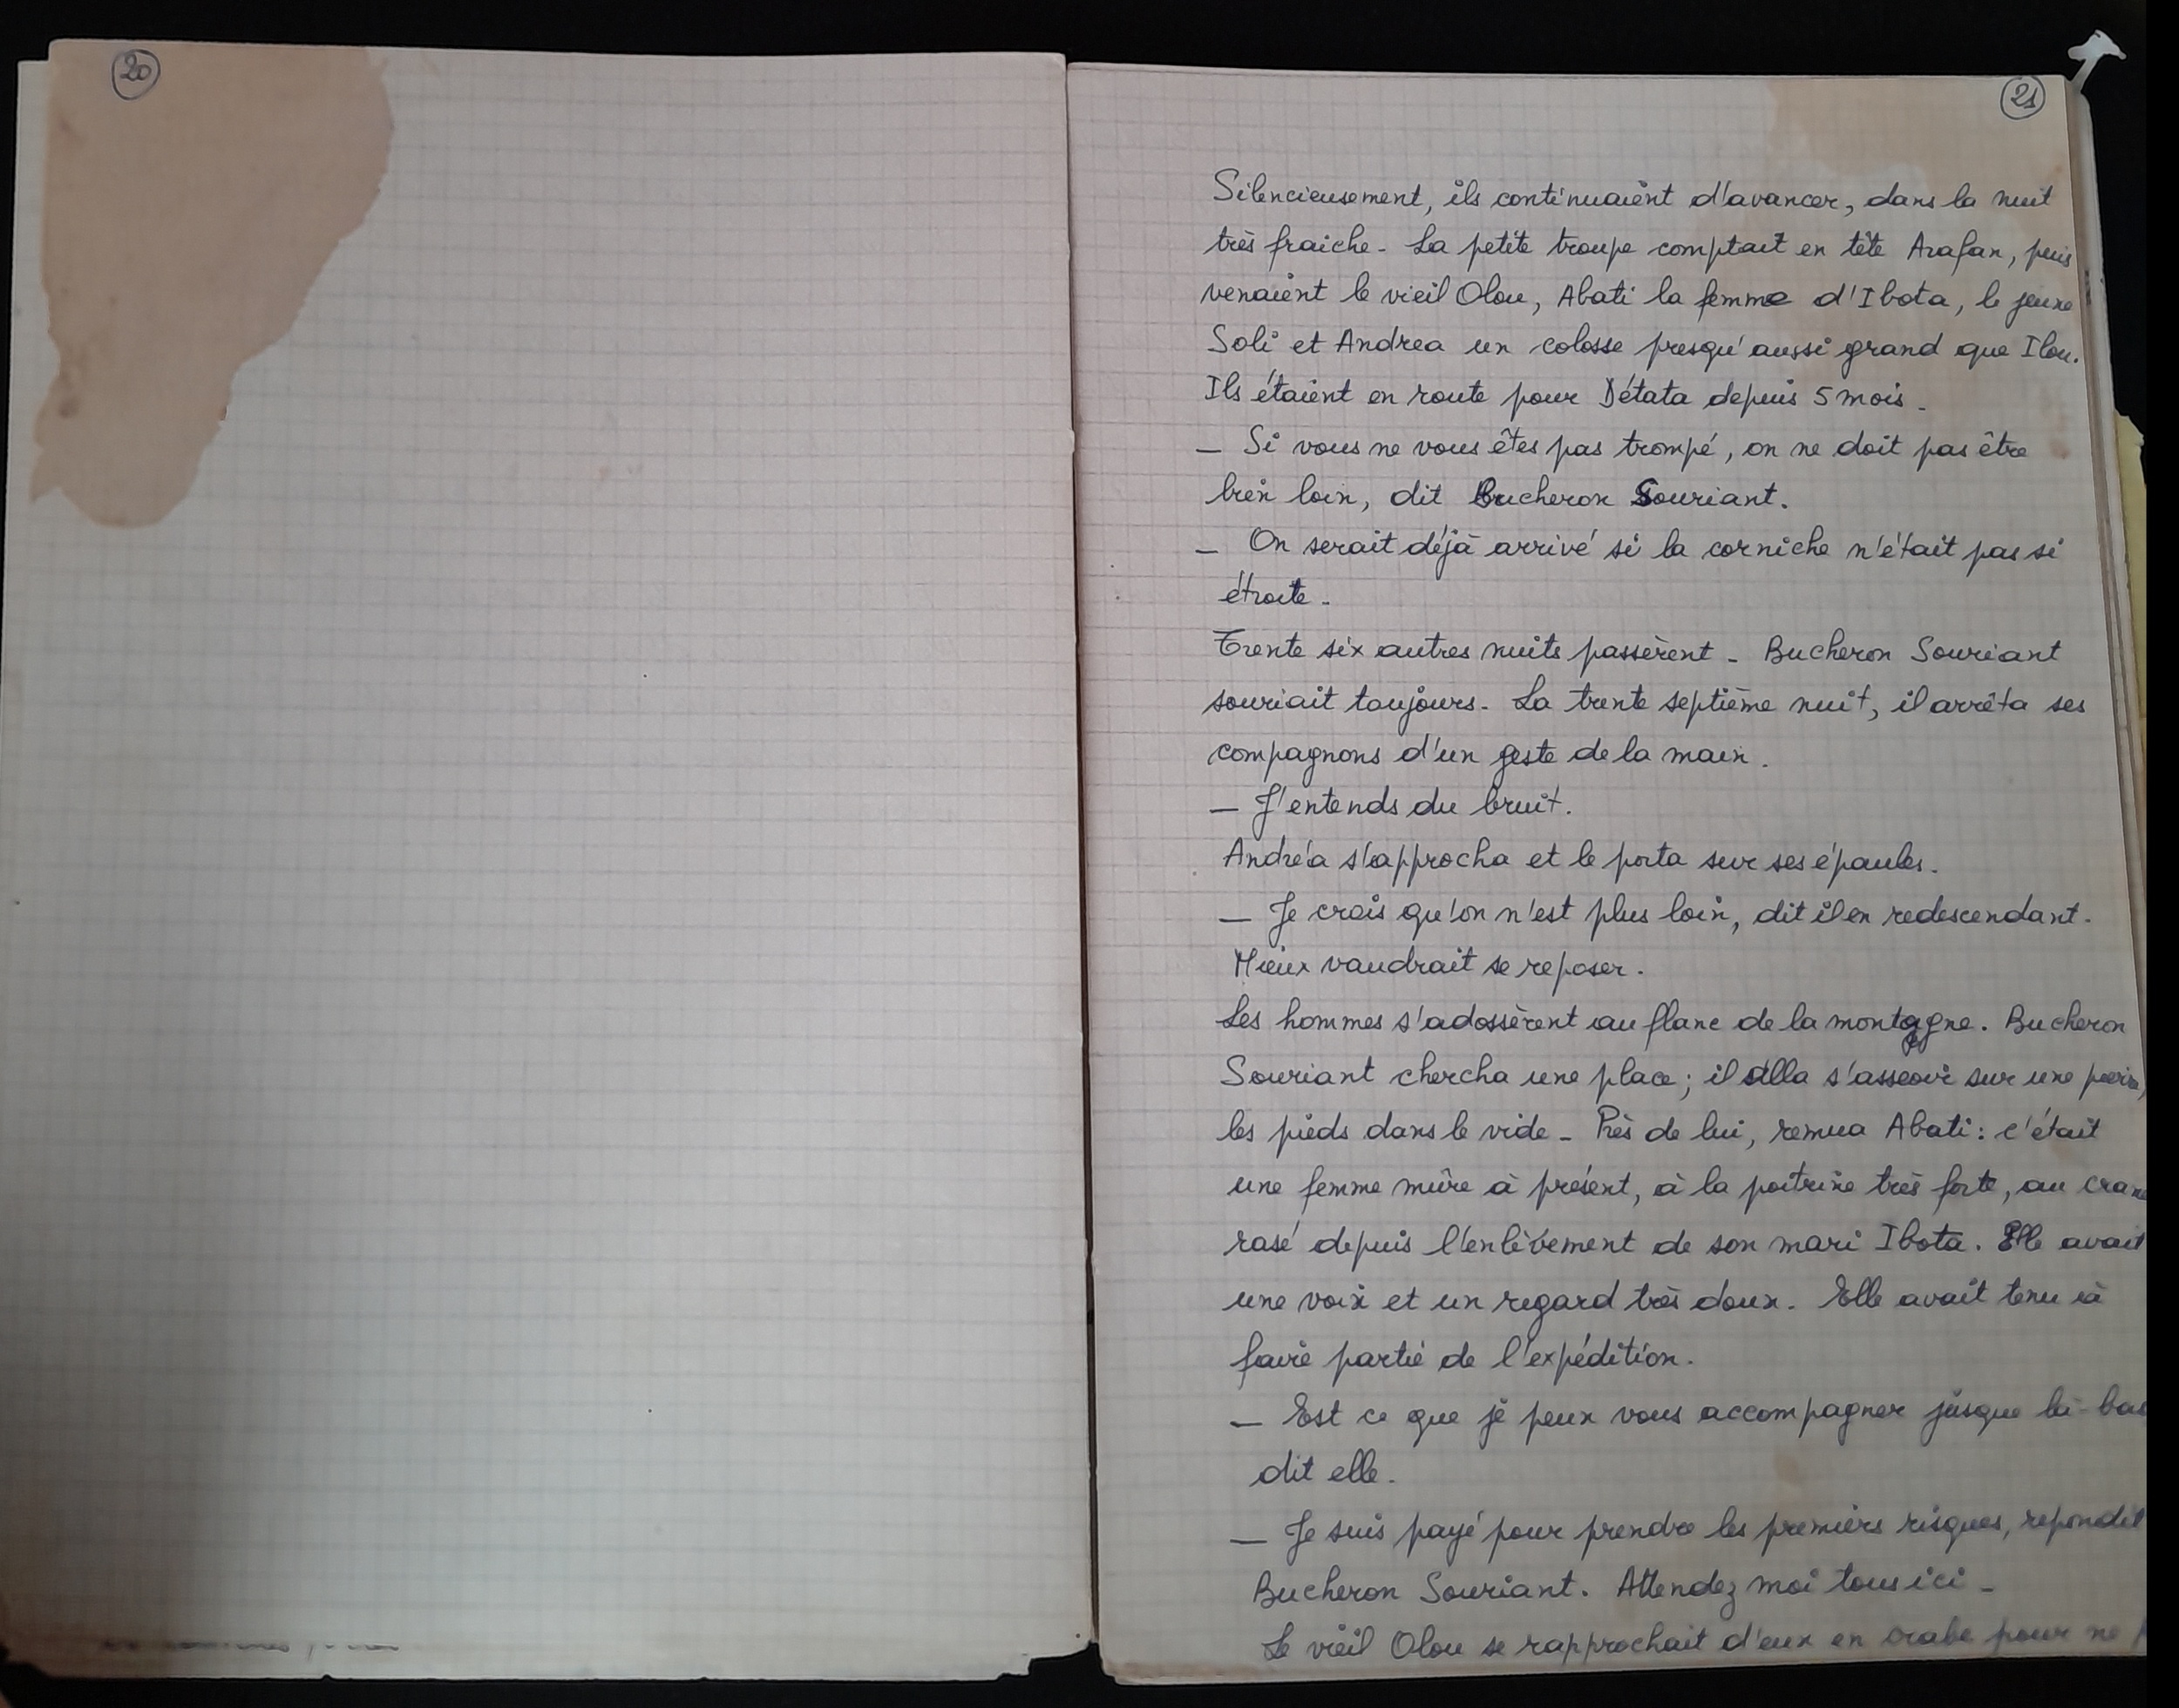 20
21
Silencieusement, ils continuaient d'avancer, dans la nuit
très fraiche - La petite troupe comptait en tête Arafan, puis
venaient le vieil Olou, Abati la femme d'Ibota, le jeune
Soli et Andrea un colosse presqu'aussi grand que Ilou.
Ils étaient en route pour Détata depuis 5 mois -
— Si vous ne vous êtes pas trompé, on ne doit pas être
bien loin, dit Bucheron Souriant.
— On serait déjà arrivé si la corniche n'était pas si
étroite -
Trente six autres nuits passèrent - Bucheron Souriant
souriait toujours - La trente septième nuit, il arrêta ses
compagnons d'un geste de la main.
— J'entends du bruit.
Andréa s'approcha et le porta sur ses épaules.
— Je crois qu'on n'est plus loin, dit il en redescendant.
Mieux vaudrait se reposer.
Les hommes s'adossèrent au flanc de la montagne. Bucheron
Souriant chercha une place ; il alla s'asseoir sur une
les pieds dans le vide - Près de lui, remua Abati : c'était
une femme mûre à présent, à la poitrine très forte, au crane
rasé depuis l'enlèvement de son mari Ibota. Elle avait
une voix et un regard très doux. Elle avait tenu à
faire partie de l'expédition.
— Est ce que je peux vous accompagner jusque là-bas
dit elle.
— Je suis payé pour prendre les premiers risques, repondit
Bucheron Souriant. Attendez moi tous ici -
Le vieil Olou se rapprochait d'eux en crabe pour ne